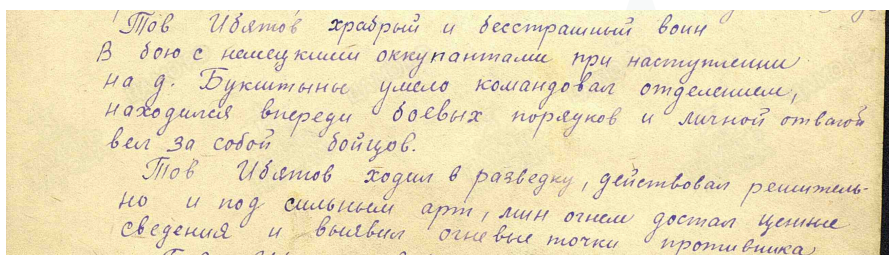 Тов Ибятов храбрый и бесстрашный воин
В бою с немецкими оккупантами при наступлении
на д. Букштыны умело командовал отделением,
находился впереди боевых порядков и личной отвагой
вел за собой бойцов.
Тов Ибятов ходил в разведку, действовал решитель-
но и под сильным арт, мин огнем достал ценные
сведения и выявил огневые точки противника